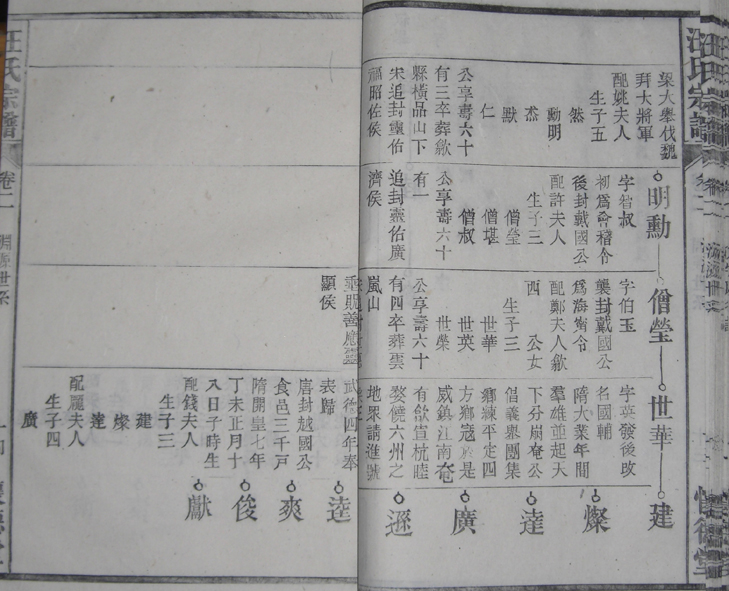 汪氏宗譜
梁大舉伐魏
拜大將軍
配姚夫人
生子五
然
勳明
杰
默
仁
公享壽六十
有三卒葬歙
縣橫品山下
宋追封靈佑
福昭佐侯
明勳
字智叔
初爲會稽令
後封戴國公
配許夫人
生子三
僧瑩
僧堪
僧叔
公享壽六十
有一
追封靈佑廣
濟侯
僧瑩
字伯玉
襲封戴國公
爲海甯令
配鄭夫人歙
西 公女
生子三
世華
世英
世榮
公享壽六十
有四卒葬雲
嵐山
顯侯
世華
字英發後改
名國輔
隋大業年間
羣雄並起天
下分崩奄公
倡義舉團集
鄉練平定四
方鄉寇於是
威鎮江南奄
有歙宣杭睦
婺饒六州之
地眾請進號
武德四年奉
表歸
唐封越國公
食邑三千戶
隋開皇七年
丁未正月十
八日子時生
配錢夫人
生子三
建
燦
達
配龐夫人
生子四
廣
建
燦
達
廣
遜
逵
爽
俊
獻
汪氏宗譜
卷二